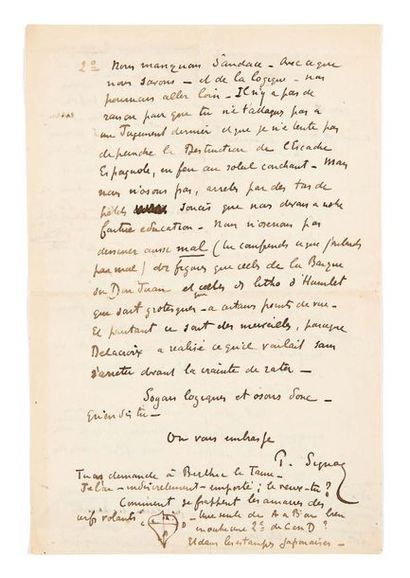 2° Nous manquons d'audace – Avec ce que
nous savons – et de la logique – nous
pourrions aller loin – Il n'y a pas de
raison pour que tu ne t'attaques pas à
un Jugement dernier et que je ne tente pas
de peindre la Destruction de l'Escadre
Espagnole, en feu au soleil couchant – Mais
nous n'osons pas, arrêtés par des tas de
bêtes soucis que nous devons à notre
fantive education – Nous n'oserions pas
dessiner aussi mal (tu comprends ce que j'entends
par mal) des figures que celles de la Barque
du Don Juan et que celles des litho d'Hamlet
que sont grotesques – à certains points de vue –
Et pourtant ce sont des merveilles, parce que
Delacroix a réalisé ce qu'il voulait sans
s'arrêter devant la crainte de rater –
Soyons logiques et osons donc –
Qu'en dis tu –
On vous embrasse
P. Signac
Tu as demandé à Berthe le Taine –
Je l'ai – indiscrètement – emporté ; le veux-tu ?
Comment se frappent les amarres des
cerfs volants –
une seule de A à B ou bien
moitié une 2e de C en D ?
Et dans les estampes Japonaises –